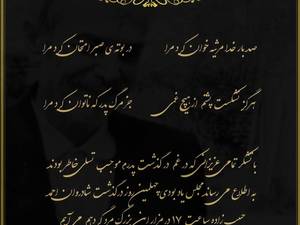 صد بار خدا مرثیه خوان کرد مرا
در بوته ی صبر امتحان کرد مرا
هرگز نشکست پشتم از هیچ غمی
جز مرگ پدر که ناتوان کرد مرا
با تشکر از تمامی عزیزانی که در غم درگذشت پدرم موجب تسلی خاطر بودند
به اطلاع می رساند مجلس یادبودی چهلمین روز درگذشت شادروان احمد
حبیب زاده ساعت ۱۷ در مزار این بزرگ مرد گرد هم می آییم